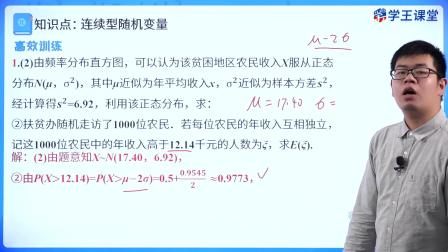 知识点：连续型随机变量
学王课堂
高效训练
μ-2σ
1.(2)由频率分布直方图，可以认为该贫困地区农民收入X服从正态
分布N(μ，σ²)，其中μ近似为年平均收入x，σ²近似为样本方差s²，
经计算得s²=6.92，利用该正态分布，求：
μ=17.40 σ=
②扶贫办随机走访了1000位农民．若每位农民的年收入互相独立，
记这1000位农民中的年收入高于12.14千元的人数为ξ，求E(ξ).
解：(2)由题意知X~N(17.40，6.92)，
②由P(X>12.14)=P(X>μ-2σ)=0.5+0.9545/2≈0.9773，